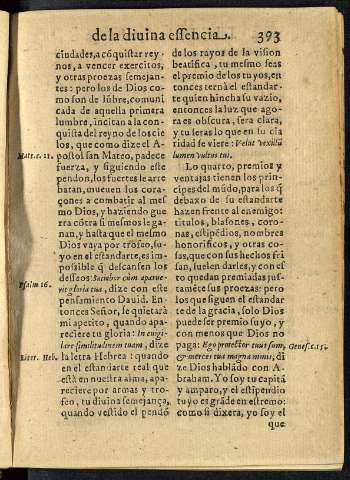 de la diuina essencia. 393
ciudades, a cõquistar rey-
nos, a vencer exercitos,
y otras proezas semejan-
tes: pero los de Dios co-
mo son de lũbre, comuni
cada de aquella primera
lumbre, incitan a la con-
quista del reyno de los cie
los, que como dize el A-
Matt. c. 11. postol san Mateo, padece
fuerza, y siguiendo este
pendon, los fuertes le arre
batan, mueuen los cora-
çones a combatir al mes
mo Dios, y haziendo gue
rra cõtra si mesmos le ga-
nan, y hasta que el mesmo
Dios vaya por trofeo, su-
yo en el estandarte, es im-
posible q̃ descansen los
desseos: Saciabor cũm appare-
Psalm 16. rit gloria tua, dize con este
pensamiento Dauid. En-
tonces Señor, se quietarà
mi apetito, quando apa-
reciere tu gloria: In euigi-
lare similitudinem tuam, dize
Liter. Heb. la letra Hebrea: quando
en el estandarte real que
està en nuestra alma, apa-
reciere por armas y tro-
feo, tu diuina semejança,
quando vestido el pendõ
de los rayos de la vision
beatifica, tu mesmo seas
el premio de los tuyos, en
tonces ternà el estandar-
te quien hincha su vazio,
entonces la luz que ago-
ra es obscura, serà clara,
y tu seras lo que en su cla
ridad se viere: Velut vexillũ
lumen vultus tui.
Lo quarto, premios y
ventajas tienen los prin-
cipes del mũdo, para los q̃
debaxo de su estandarte
hazen frente al enemigo:
titulos, blasones, coro-
nas, estipẽdios, nombres
honorificos, y otras co-
sas, que con sus hechos fri
san, suelen darles, y con el
to quedan premiadas jus-
tamẽte sus proezas: pero
los que siguen el estandar
te de la gracia, solo Dios
puede ser premio suyo, y
con menos que Dios no
paga: Ego protector tuus sum, Genes. c. 15.
& merces tua magna nimis, di
ze Dios hablãdo con A-
braham. Yo soy tu capitã
y amparo, y el estipendio
tuyo es grãde en estremo:
como si dixera, yo soy el
que